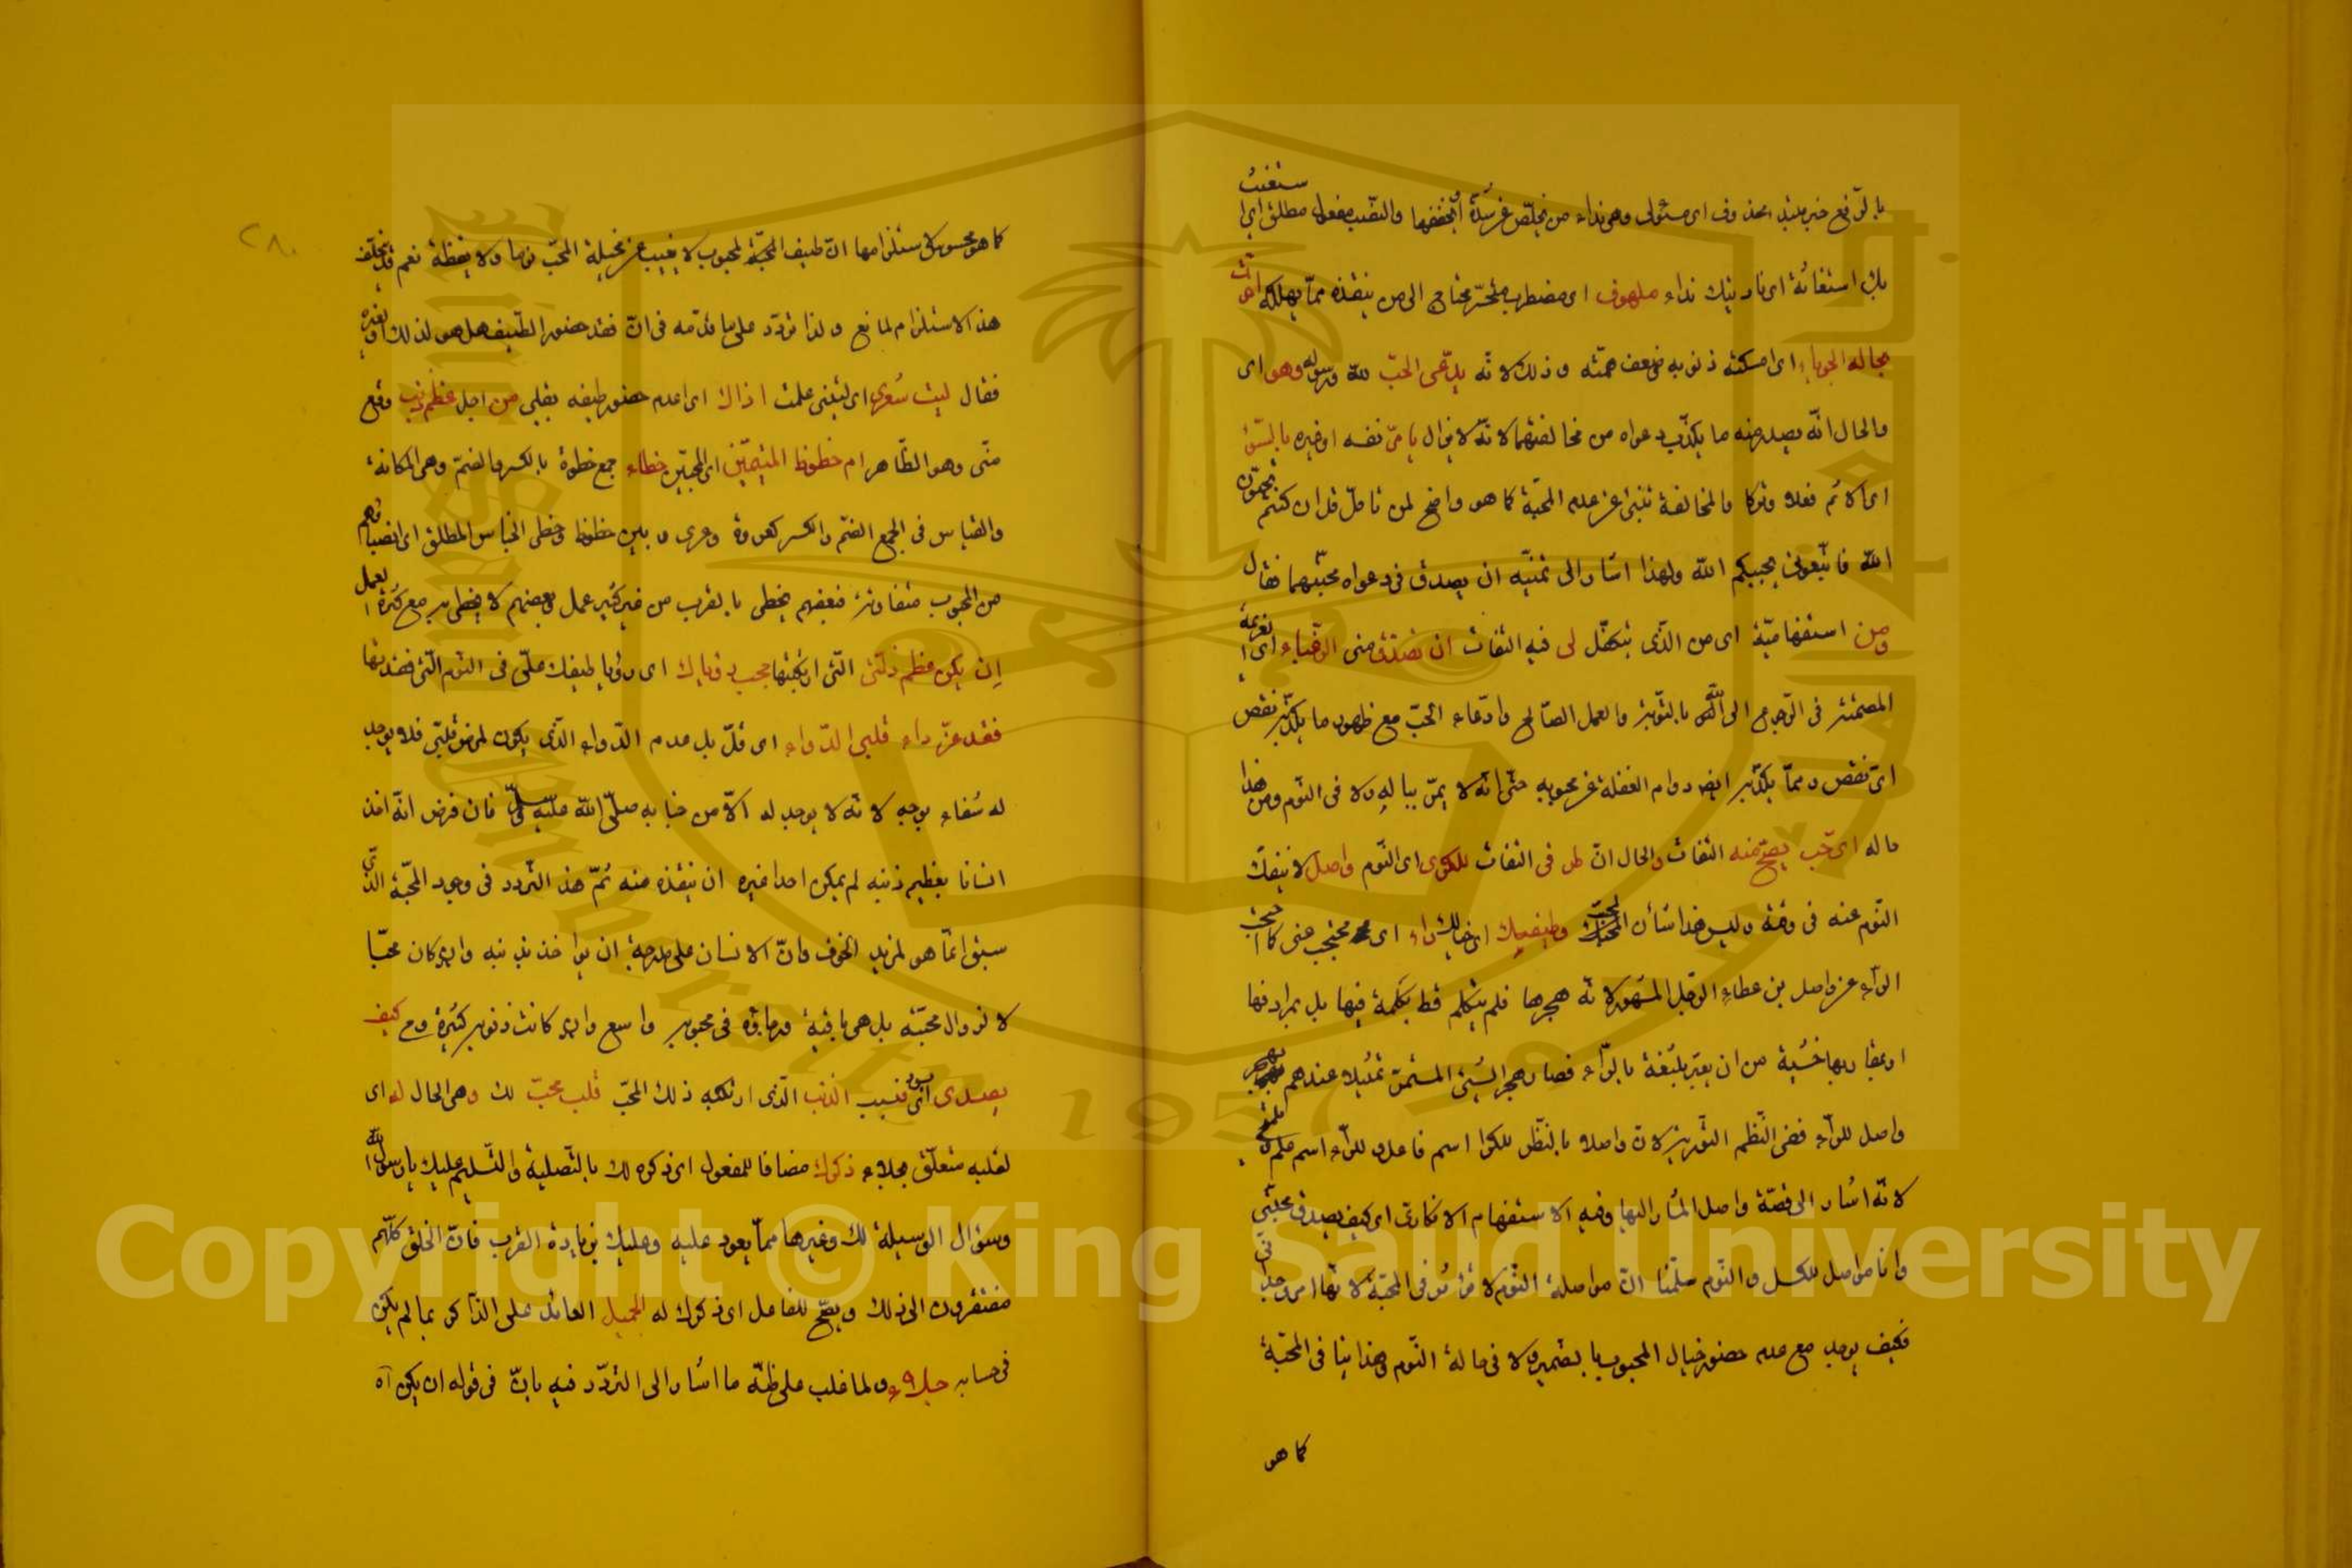 بالرفع خبر مبتدا محذوف اى مسئولى وهى نداء من يخلّص من شدّة او يخففها والنصب مفعول مطلق اى استغثت
بك استغاثة اى ناديتك نداء ملهوف اى مضطرب متحسّر محتاج الى من ينقذه ممّا يهلكه
بحاله الحوباء اى مسكنة ذنوبه ضعف همّته وذلك لانّه يدّعى الحبّ لله ورسوله وهو اى
والحال انّه يصدر منه ما يكذّب دعواه من مخالفتهما لانّه لا يزال يامر نفسه او غيره بالسّوء
اى الاثم فعلا وتركا والمخالفة تنبئ عن عدم المحبّة كما هو واضح لمن تامّل قل ان كنتم تحبّون
الله فاتّبعونى يحببكم الله ولهذا اشار الى تمنّيه ان يصدق فى دعواه محبّتهما فقال
ومن استفهاميّة اى من الّذى يتكفّل لى فيه التفات ان تصدق منى الرغباء اى العزيمة
المصمّمة فى الرّجوع الى الله بالتّوبة والعمل الصّالح وادّعاء الحبّ مع ظهور ما يكذّبه نقص
اىّ نقص وممّا يكذّبه ايضا دوام الغفلة عن محبوبه حتّى انّه لا يمرّ بباله ولا فى النّوم ومن هذا
ماله اىّ حبّ يصحّ منه التفات والحال ان طر فى التفات للكرى اى النّوم واصل لا ينفكّ
النّوم عنه فى وقته وليس هذا شأن المحبّ وطيفك اى خيالك راء اى محتجب عنى كما احتجب
الراء عن واصل بن عطاء الرّجل المشهور لانّه هجرها فلم يتكلّم قط بكلمة فيها بل بمرادفها
او بمقاربها خشية من ان يعيّر بلثغة بالراء فصار هجر الشئ المستمرّ تمثيلا عندهم بهجر
واصل للراء ففى النّظم التورية لان واصلا بالنّظر للكرا اسم فاعل وللراء اسم علم
لانّه اشار الى قصّة واصل المشار اليها وفيه الاستفهام الانكارى اى كيف يصدق محبّتى
وانا مواصل للكسل والنّوم سلّمنا انّ مواصلة النّوم لا تؤثر فى المحبّة لانّها امر وجدانى
فكيف يوجد مع عدم حضور خيال المحبوب بالضمير ولا فى حالة النّوم وهذا ينافى المحبّة
كما هو
كما هو محسوس لاستلزامها انّ طيف المحبّة لمحبوب لا يغيب عن مخيلة المحبّ نوما ولا يقظة نعم قد يتخلّف
هذا الاستلزام لمانع ولذا تردّد على ما قدّمه فى انّ فقد حضور الطّيف هل هو لذلك او لغيره
فقال ليت شعرى اى ليتنى علمت اذاك اى اعدم حضور طيفه بقلبى من اجل عظم ذنب وقع
منّى وهو الظّاهر ام حظوظ المتيّمين اى المحبّين حظاء جمع حظوة بالكسر والضمّ وهى المكانة
والقياس فى الجمع الضمّ والكسر كعروة وعرى وبين حظوظ وحظى الجناس المطلق اى انصباؤهم
من المحبوب متفاوتة فبعضهم يحظى بالقرب من غير كثير عمل وبعضهم لا يحظى به مع كثرة العمل
إن يكن عظم زلّتى الّتى ارتكبتها حجب رؤياك اى رؤيا طيفك علىّ فى النّوم الّتى فقدتها
فقد عزّ داء قلبى الدّواء اى قلّ بل عدم الدّواء الّذى يكون لمرض قلبى فلا يوجد
له شفاء بوجه لانّه لا يوجد له الاّ من جنابه صلّى الله عليه وسلّم فان فرض انّه اخذ
انسانا بعظيم ذنبه لم يمكن احدا غيره ان ينقذه منه ثمّ هذا التّردد فى وجود المحبّة الذّى
سبق انّما هو لمزيد الخوف وانّ الانسان على درجة ان يؤاخذ بذنبه وان كان محبّا
لا لزوال محبّته بل هى باقية ورجاؤه فى محبوبه واسع وان كانت ذنوبه كثيرة وح كيف
يصدى اى يسود بسبب الذنب الّذى ارتكبه ذلك المحبّ قلب محبّ لك وهى الحال له اى
لقلبه متعلّق بجلاء ذكرك مضافا للمفعول اى ذكره لك بالتّصلية والتّسليم عليك يا رسول الله
وسؤال الوسيلة لك وغيرها ممّا يعود عليه وعليك بزيادة القرب فانّ الخلق كلّهم
مفتقرون الى ذلك ويصحّ للفاعل اى ذكرك له الجميل العائد على الذّاكر بما لم يكن
فى حسابه جلاء ولما غلب على ظنّه ما اشار الى التردّد فيه بانّ فى قوله ان يكن اه